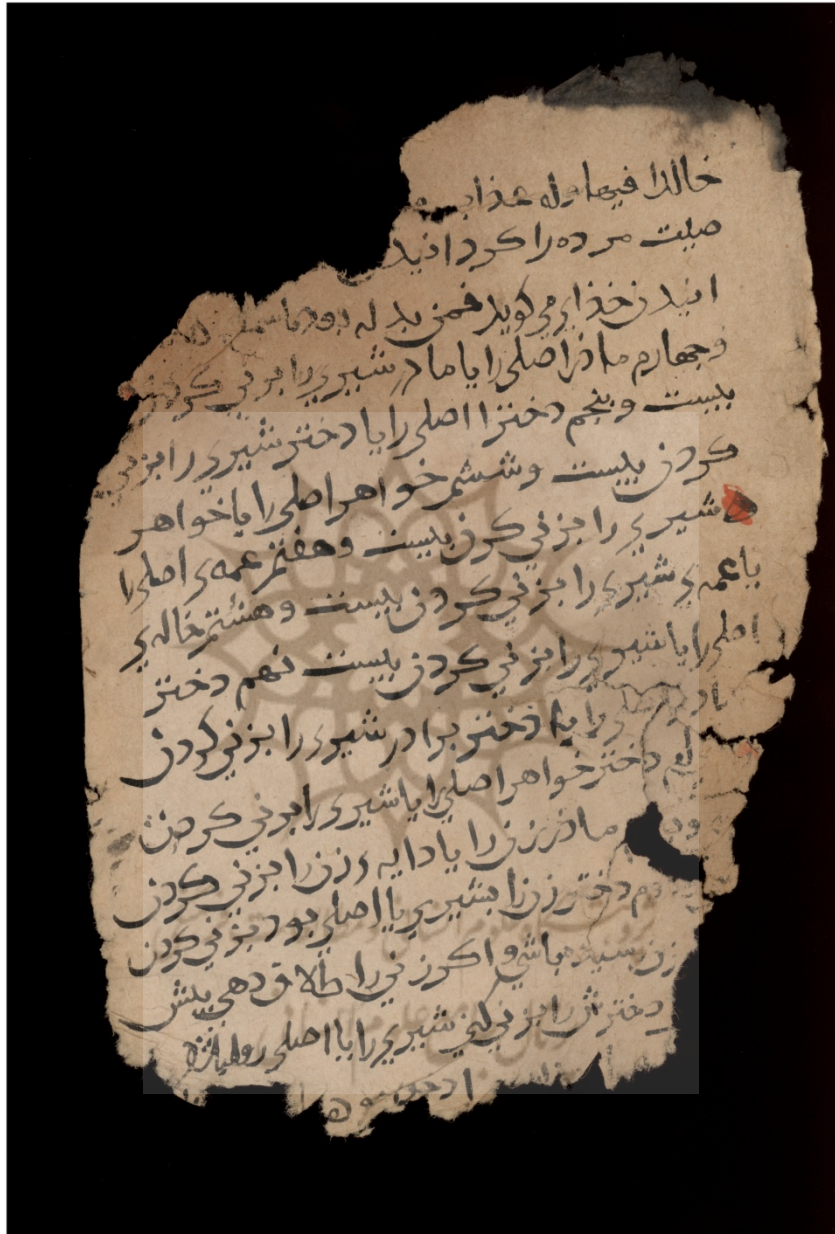 خالدا فيها وله عذاب
ميت مرده را كردانيد
انيدن خذاي مي كويد فمن بدله بعدما سمعه
وجهارم مادر اصلي را يا مادر شيري را بزني كردن
بيست وپنجم دخترا اصلي را يا دختر شيري را بزني
كردن بيست وششم خواهر اصلي را يا خواهر
شيري را بزني كردن بيست وهفتم عمه ي اصلي را
يا عمه ي شيري را بزني كردن بيست وهشتم خاله ي
اصلي را يا شيري را بزني كردن بيست نهم دختر
را يا دختر برادر شيري را بزني كردن
دختر خواهر اصلي را يا شيري را بزني كردن
مادر زن را يا دايه ء زن را بزني كردن
دم دختر زن را بشيري يا اصلي بود بزني كردن
زن رسيده باشي و اكر زني را طلاق دهي پيش
دخترش را بزني كني شيري را يا اصلي روا باشد